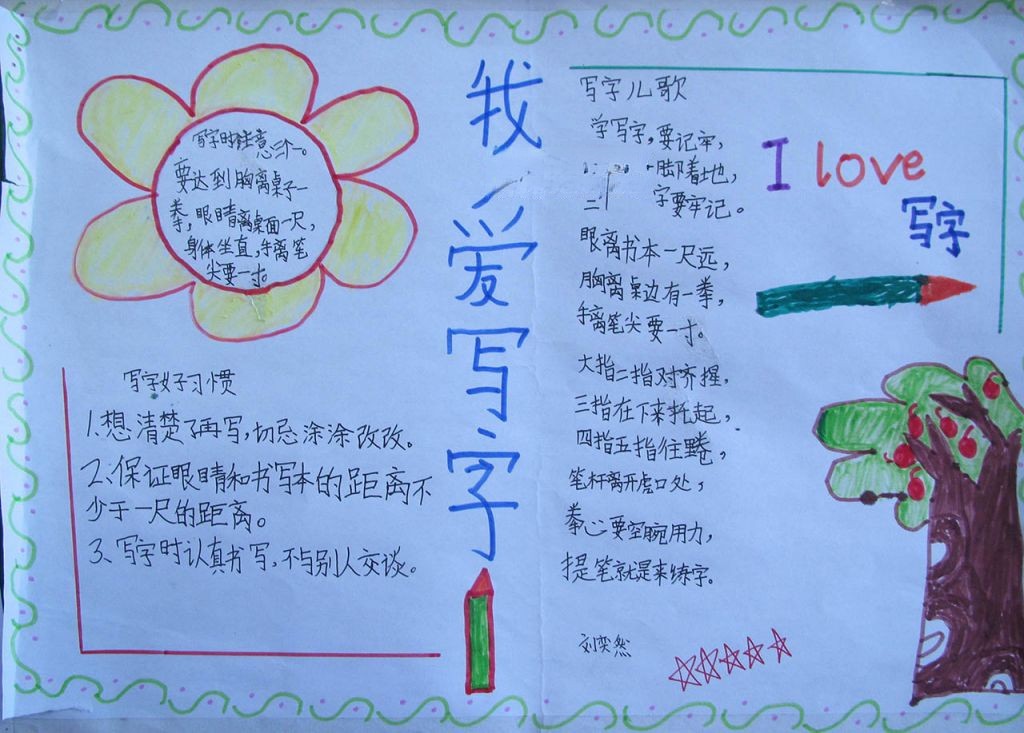 写字时注意三个一。
要达到胸离桌子一
拳，眼睛离桌面一尺，
身体坐直，手离笔
尖要一寸。
写字好习惯
1.想清楚了再写，切忌涂涂改改。
2、保证眼睛和书写本的距离不
少于一尺的距离。
3、写字时认真书写，不与别人交谈。
我爱写字
写字儿歌
学写字，要记牢，
脚着地，
字要牢记。
眼离书本一尺远，
胸离桌边有一拳，
手离笔尖要一寸。
大指二指对齐握，
三指在下来托起，
四指五指往
笔杆离开虎口处，
拳心要空腕用力，
提笔就是来练字。
刘奕然
I love
写字